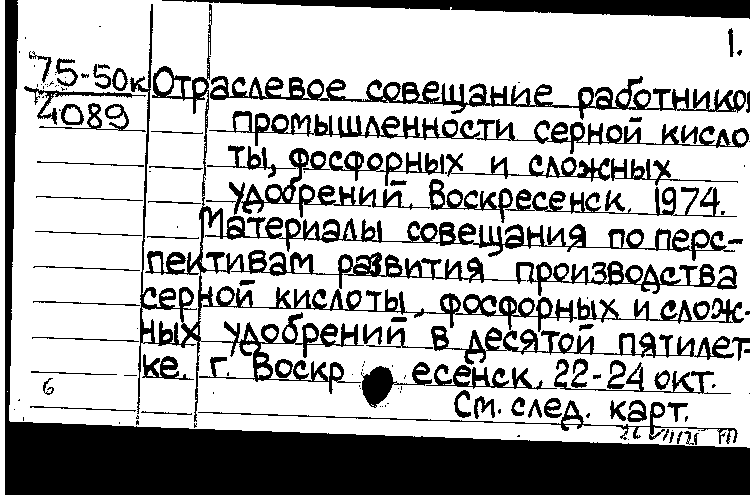 1.
75-50к Отраслевое совещание работников
4089
промышленности серной кисло-
ты, фосфорных и сложных
удобрений. Воскресенск. 1974.
Материалы совещания по перс-
пективам развития производства
серной кислоты, фосфорных и слож-
ных удобрений в десятой пятилет-
ке. г. Воскр есенск, 22-24 окт.
6
См. след. карт.